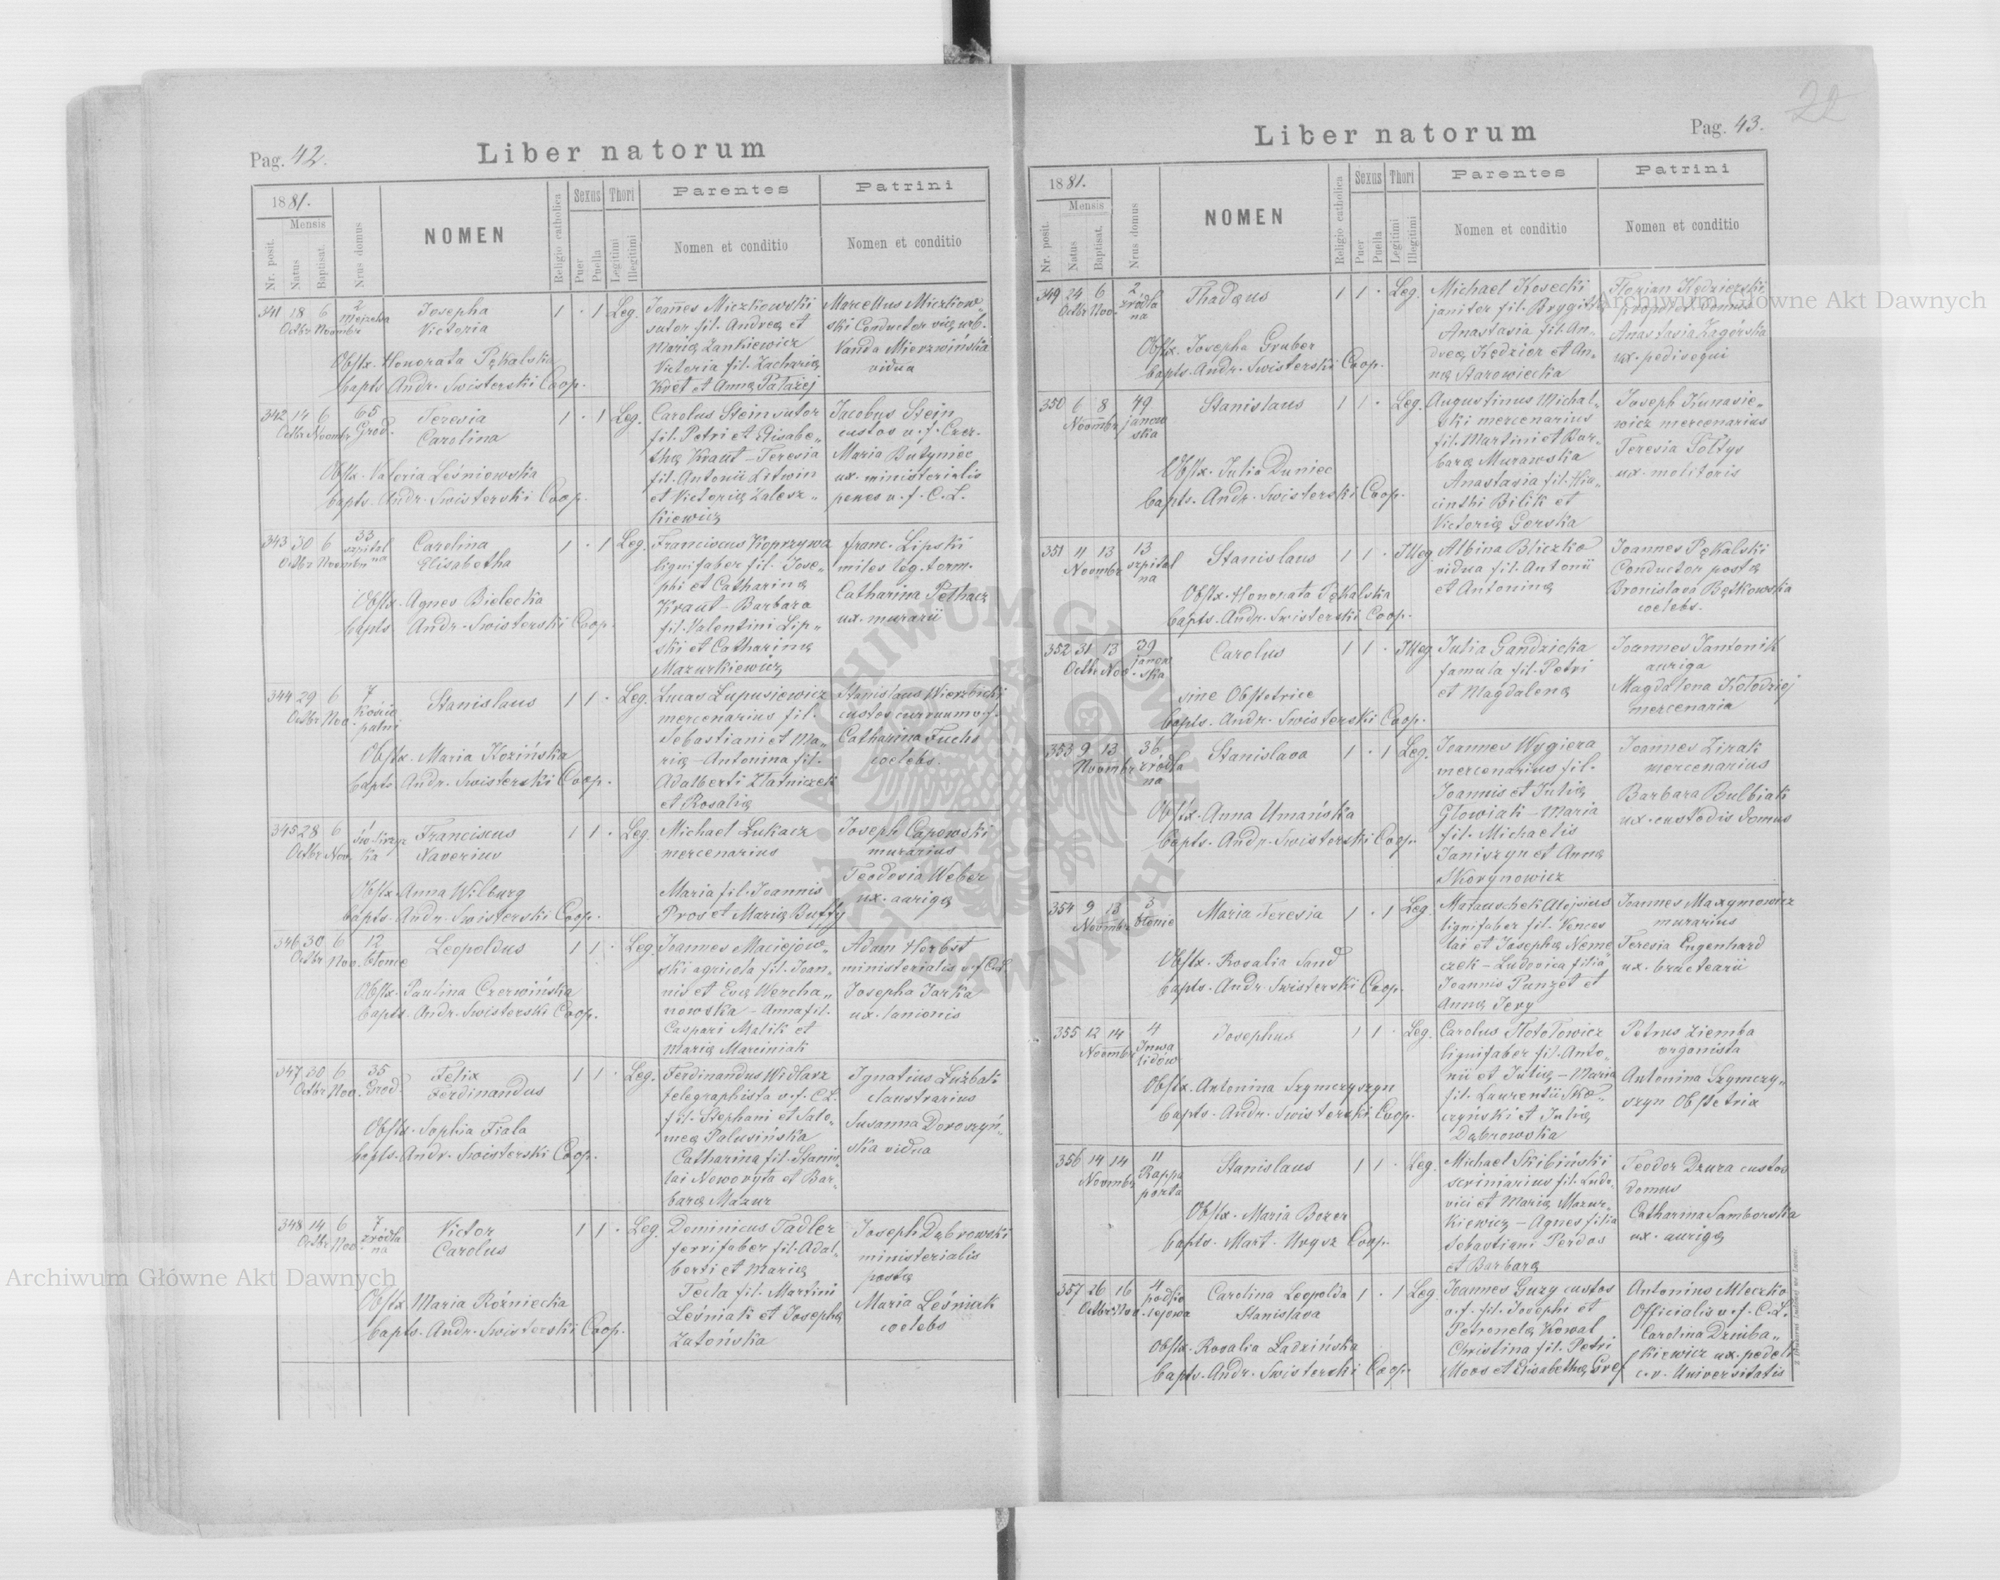 22
Pag. 42.
Liber natorum
1881.
Mensis
Nr. posit.
Natus
Baptisat.
Nrus domus
NOMEN
Religio catholica
Sexus
Puer
Puella
Thori
Legitimi
Illegitimi
Parentes
Nomen et conditio
Patrini
Nomen et conditio
341 18 6 2 Josepha 1 · 1 Leg. Joannes Miczkowski Marcellus Miczkow-
Octbr Novembr Victoria sutor fil. Andreę et ski Conductor
Marię Zankiewicz Vanda Mierzwińska
Obstx. Honorata Pękalska Victoria fil. Zacharię vidua
bapts. Andr. Swisterski Coop. Kret et Annę
342 14 6 65 Teresia 1 · 1 Leg. Carolus Stein sutor Jacobus Stein
Octbr Novembr Grod. Carolina fil. Petri et Elisabe- custos v. f. Czer.
thę Kraut - Teresia Maria Butymiec
Obstx. Valeria Leśniewska fil. Antonii Litwin ux. ministerialis
bapts. Andr. Swisterski Coop. et Victorię Zalesz- penes v. f. C. L.
kiewicz
343 30 6 33 Carolina 1 · 1 Leg. Franciscus Koprzywa Franc. Lipski
Octbr Novembr szpitalna Elisabetha lignifaber fil. Jose- miles leg. torm.
phi et Catharinę Catharina
Obstx. Agnes Bielecka Kraut - Barbara ux. murarii
bapts. Andr. Swisterski Coop. fil. Valentini Lip-
ski et Catharinę
Mazurkiewicz
344 29 6 7 Stanislaus 1 1 · Leg. Lucas Lupusiewicz Stanislaus Wierzbicki
Octbr Nov. mercenarius fil. custos curruum v. f.
Sebastiani et Ma- Catharina Fuchs
Obstx. Maria Kozińska rię - Antonina fil. coelebs.
bapts. Andr. Swisterski Coop. Adalberti Zlatniczek
et Rosalię
345 28 6 Franciscus 1 1 · Leg. Michael Lukacz Joseph Capowski
Octbr Nov. Xaverius mercenarius murarius
Teodosia Weber
Obstx. Anna Wilburg Maria fil. Joannis ux. aurigę
bapts. Andr. Swisterski Coop. Pros et Marię Buffy
346 30 6 12 Leopoldus 1 1 · Leg. Joannes Maciejow- Adam Herbst
Octbr Nov. błonie ski agricola fil. Joan- ministerialis v. f. C. L.
Obstx. Paulina Czerwińska nis et Evę Wercha- Josepha Jarka
bapts. Andr. Swisterski Coop. nowska - Anna fil. ux. lanionis
Caspari Malik et
Marię Marciniak
347 30 6 35 Felix 1 1 · Leg. Ferdinandus Widlarz Ignatius
Octbr Nov. Grod. Ferdinandus telegraphista v. f. C. L. claustrarius
fil. Stephani et Salo- Susanna Doroszyń-
Obstx. Sophia Fiala meę Palusińska ska vidua
bapts. Andr. Swisterski Coop. Catharina fil. Stanis-
lai Noworyta et Bar-
barę Mazur
348 14 6 7 Victor 1 1 · Leg. Dominicus Tadler Joseph Dąbrowski
Octbr Nov. źródlana Carolus ferrifaber fil. Adal- ministerialis
berti et Marię postę
Obstx. Maria Rożniecka Tecla fil. Martini Maria Leśniak
bapts. Andr. Swisterski Coop. Leśniak et Josephę coelebs
Zatońska
Pag. 43.
Liber natorum
1881.
Mensis
Nr. posit.
Natus
Baptisat.
Nrus domus
NOMEN
Religio catholica
Sexus
Puer
Puella
Thori
Legitimi
Illegitimi
Parentes
Nomen et conditio
Patrini
Nomen et conditio
349 24 6 2 Thadęus 1 1 · Leg. Michael Kosecki Florian Kędzierski
Octbr Nov. źródlana janitor fil. Brygitę propriet. domus
Anastasia fil. An- Anastasia Zagórska
Obstx. Josepha Gruber dreę Kędzier et An- ux. pedisequi
bapts. Andr. Swisterski Coop. nę Starowiecka
350 6 8 49 Stanislaus 1 1 · Leg. Augustinus Michal- Joseph Kunasie-
Novembr janowska ski mercenarius wicz mercenarius
fil. Martini et Bar- Teresia Soltys
Obstx. Julia Duniec barę Murawska ux. molitoris
bapts. Andr. Swisterski Coop. Anastasia fil. Hia-
cinthi Bilik et
Victorię Gorska
351 11 13 13 Stanislaus 1 1 · Illeg. Albina Bliczko Joannes Pękalski
Novembr szpitalna vidua fil. Antonii Conductor postę
Obstx. Honorata Pękalska et Antoninę Bronislava Bętkowska
bapts. Andr. Swisterski Coop. coelebs.
352 31 13 39 Carolus 1 1 · Illeg. Julia Gandzicka Joannes Jantonik
Octbr Nov. janowska famula fil. Petri auriga
sine Obstetrice et Magdalenę Magdalena Kołodziej
bapts. Andr. Swisterski Coop. mercenaria
353 9 13 36 Stanislava 1 · 1 Leg. Joannes Wygiera Joannes Zirak
Novembr źródlana mercenarius fil. mercenarius
Joannis et Julię Barbara Bulbiak
Obstx. Anna Umańska Glowiak - Maria ux. custodis domus
bapts. Andr. Swisterski Coop. fil. Michaelis
Janiszyn et Annę
Skorynowicz
354 9 13 3 Maria Teresia 1 · 1 Leg. Matauschek Alojsius Joannes Maxymowicz
Novembr błonie lignifaber fil. Vences murarius
Obstx. Rosalia Sand lai et Josephę Neme Teresia Engenhard
bapts. Andr. Swisterski Coop. czek - Ludovica filia ux. bractearii
Joannis Punzet et
Annę Jery
355 12 14 4 Josephus 1 1 · Leg. Carolus Petrus Ziemba
Novembr Inwalidów lignifaber fil. Anto- organista
Obstx. Antonina Szymczyszyn nii et Julię - Maria Antonina Szymczy-
bapts. Andr. Swisterski Coop. fil. Laurentii szyn Obstetrix
et Julię
Dąbrowska
356 14 14 11 Stanislaus 1 1 · Leg. Michael Skibiński Teodor Dzura custos
Novembr Rappaporta scriniarius fil. Ludo- domus
Obstx. Maria Bozer vici et Marię Mazur- Catharina Samborska
bapts. Mart. Coop. kiewicz - Agnes filia ux. aurigę
Sebastiani Perdas
et Barbarę
357 26 16 4 Carolina Leopolda 1 · 1 Leg. Joannes Guzy custos Antonius Mleczko
Octbr Nov. Stanislava v. f. fil. Josephi et Officialis v. f. C. L.
Petronelę Kowal Carolina Dziuba-
Obstx. Rosalia Ladzińska Christina fil. Petri kiewicz ux. pedeli
bapts. Andr. Swisterski Coop. Moos et Elisabethę Gref c. r. Universitatis
Archiwum Główne Akt Dawnych
Archiwum Główne Akt Dawnych
ARCHIWUM GŁÓWNE AKT DAWNYCH